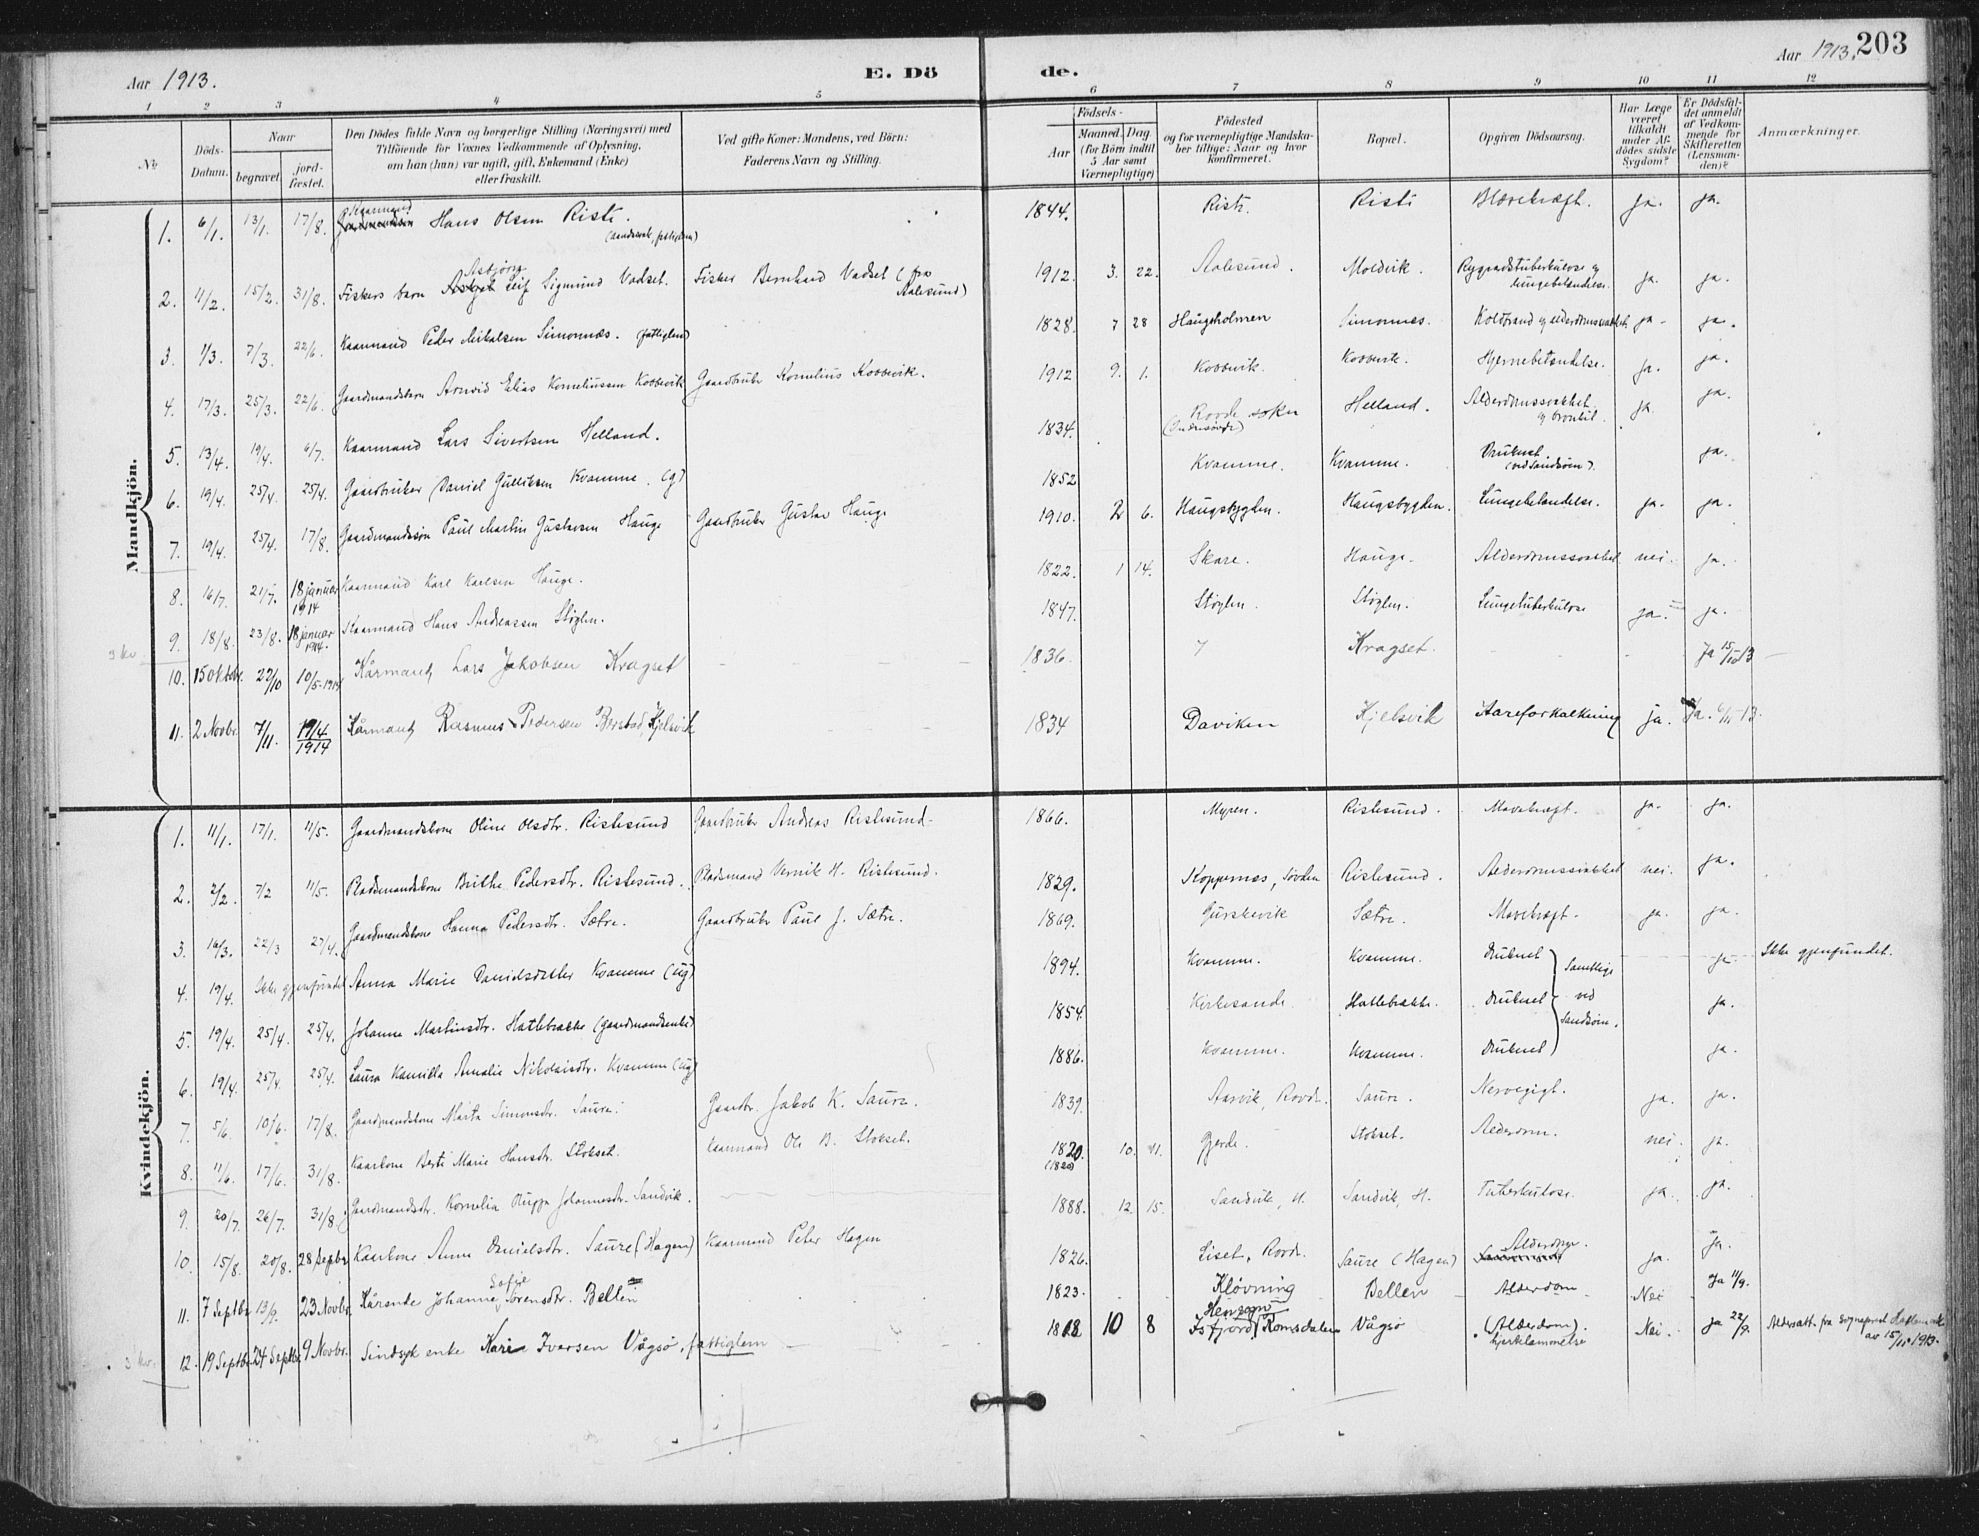 Aar 1913.
E. Dö
de.
Aar 1913.
203
1 2 3 4 5 6 7 8 9 10 11 12
No
Döds-Datum.
Naar
begravet.
jord-fæstet.
Den Dödes fulde Navn og borgerlige Stilling (Næringsvei) med
Tilföiende for Voxnes Vedkommende af Oplysning,
om han (hun) var ugift, gift, Enkemand (Enke)
eller fraskilt.
Ved gifte Koner: Mandens, ved Börn:
Faderens Navn og Stilling.
Födsels-
Aar
Maaned. Dag.
(for Börn indtil 5 Aar samt Værnepligtige)
Födested
og for værnepligtige Mandskaber tillige: Naar og hvor konfirmeret.
Bopæl.
Opgiven Dödsaarsag.
Har Læge været tilkaldt under Afdödes sidste Sygdom?
Er Dödsfaldet anmeldt af Vedkommende for Skifteretten (Lensmanden)?
Anmærkninger.
Mandkjön.
1. 6/1. 13/1. 17/8. Kaarmand Hans Olsen Riste. 1844. Riste. Riste Blærekræft. ja. ja.
2. 11/2. 15/2. 31/8. Fiskers barn Asbjörn Leif Sigmund Vadset. Fisker Bernhard Vadset (fra Aalesund) 1912. 3. 22. Aalesund. Moldvik. Rygradstuberkulose og lungebetændelse. ja. ja.
3. 1/3. 7/3. 22/6. Kaarmand Peder Mikalsen Simonnæs. (fattiglem) 1828. 7 28 Haugsholmen Simonnes. Koldbrand og alderdomssvakhet ja. ja.
4. 17/3. 25/3. 22/6. Gaardmandsbarn Arnvid Elias Korneliussen Kobbevik Gaardbruker Kornelius Kobbevik. 1912 9. 1. Kobbevik. Kobbevik. Hjernebetændelse. ja. ja.
5. 13/4. 19/4. 6/7. Kaarmand Lars Sivertsen Helland. 1834. Rovde sokn Helland. Alderdomssvakhet og bronkit. ja. ja.
6. 19/4. 25/4. 25/4. Gaardbruker Daniel Gulliksen Kvamme. (g) 1852 Kvamme. Kvamme. Druknet (ved Sandsøen). ja.
7. 19/4. 25/4. 17/8. Gaardmandssøn Paul Martin Gustavsen Hauge Gaardbruker Gustav Hauge 1910. 2 6. Haugsbygden. Haugsbygden. Lungebetændelse. ja. ja.
8. 16/7. 21/7. 18 januar 1914 Kaarmand Karl Karlsen Hauge. 1822. 1 14. Skare. Hauge. Alderdomssvakhet nei. ja.
9. 18/8. 23/8. 18 januar 1914. Kaarmand Hans Andreassen Støylen. 1847. Støylen. Støylen. Lungetuberkulose ja. ja.
3 kv
10. 15 oktobr. 22/10 10/5-1914 Kårmand Lars Jakobsen Kragset 1836. Kragset. Ja 15/10 13
11. 2 Novbr. 7/11. 19/4 1914 Kårmand, Rasmus Pedersen Berstad, Kjelsvik 1834 Daviken Kjelsvik Aareforkalkning ja. Ja. 6/11-13.
Kvindekjön.
1. 11/1. 17/1. 11/5. Gaardmandskone Oline Olsdtr. Ristesund Gaardbruker Andreas Ristesund. 1866. Myren. Ristesund. Mavekræft. ja. ja.
2. 2/2. 7/2 11/5. Pladsmandskone Brithe Pedersdtr. Ristesund. Pladsmand Vernik H. Ristesund. 1829. Koppernæs, Søvden Ristesund. Alderdomssvakhet nei. ja.
3. 16/3. 22/3 27/4. Gaardmandskone Hanna Pedersdtr. Sætre. Gaardbruker Paul J. Sætre. 1869. Gurskevik Sætre. Mavekræft. ja. ja.
4. 19/4. Ikke gjenfundet Anna Marie Danielsdatter Kvamme (ug) 1894. Kvamme. Kvamme. Druknet ja Ikke gjenfundet.
Samtlige ved Sandsøen.
5. 19/4. 25/4. 25/4. Johanne Martinsdtr. Hatlebrække (gaardmandsenke) 1854. Kirkesande. Hatlebrække. Druknet ja.
6. 19/4. 25/4. 25/4. Laura Kamilla Amalie Nikolaisdtr. Kvamme (ug) 1886. Kvamme. Kvamme. Druknet ja.
7. 5/6. 10/6. 17/8. Gaardmandskone Marta Simonsdtr. Saure. Gaardbr. Jakob K. Saure. 1839. Aarvik, Rovde. Saure. Nervegigt. ja. ja.
8. 11/6. 17/6. 31/8. Kaarkone Berte Marie Hansdtr. Stokset. Kaarmand Ole B. Stokset. 1820. (1820) 10. 11. Gjerde. Stokset. Alderdom. nei. ja.
9. 20/7. 26/7. 31/8. Gaardmandsdtr. Kornelia Johannesdtr. Sandvik. 1888. 12. 15. Sandvik, H. Sandvik, H. Tuberkulose. ja. ja.
10. 15/8. 20/8. 28 Septbr Kaarkone Anne Danielsdtr. Saure (Hagen) Kaarmand Peter Hagen 1826. Liset, Rovde. Saure (Hagen) Alderdom. ja. ja.
11. 7 Septbr 13/9. 23 Novbr. Kårende Johanne Sofie Sørensdtr. Bellen 1823. Kløvning Bellen Alderdom Nei Ja 11/9.
3 kv.
12. 19 Septbr. 24 Septbr. 9 Novbr. Sindssyk enke Kari Iversen Vågsø, fattiglem 1818 10 8 Isfjord, Romsdalen Vågsø (Alderdom). hjerklammelse Nei. ja 22/9. Aldersatt. fra Sogneprest av 15/11 1913.